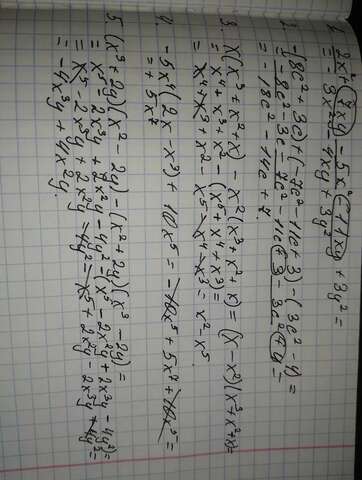 1. 2x²+7xy - 5x² - 11xy + 3y² =
= -3x² - 4xy + 3y²
2. -(8c² + 3c) + (-7c² - 11c + 3) - (3c² - 4) =
= -8c² - 3c - 7c² - 11c + 3 - 3c² + 4 =
= -18c² - 14c + 7.
3. x(x³ + x² + x) - x²(x³ + x² + x) = (x - x²)(x³ + x² + x) =
= x⁴ + x³ + x² - (x⁵ + x⁴ + x³) =
= x⁴ + x³ + x² - x⁵ - x⁴ - x³ = x² x⁵.
4. -5x⁴(2x - x³) + 10x⁵ = -10x⁵ + 5x⁷ + 10x⁵ =
= + 5x⁷
5 (x³ + 2y)(x² - 2y) - (x² + 2y)(x³ - 2y) =
= x⁵ - 2x³y + 2x²y - 4y² - (x⁵ - 2x²y + 2x³y - 4y²) =
= x⁵ - 2x³y + 2x²y - 4y² - x⁵ + 2x²y - 2x³y + 4y² =
= -4x³y + 4x²y.